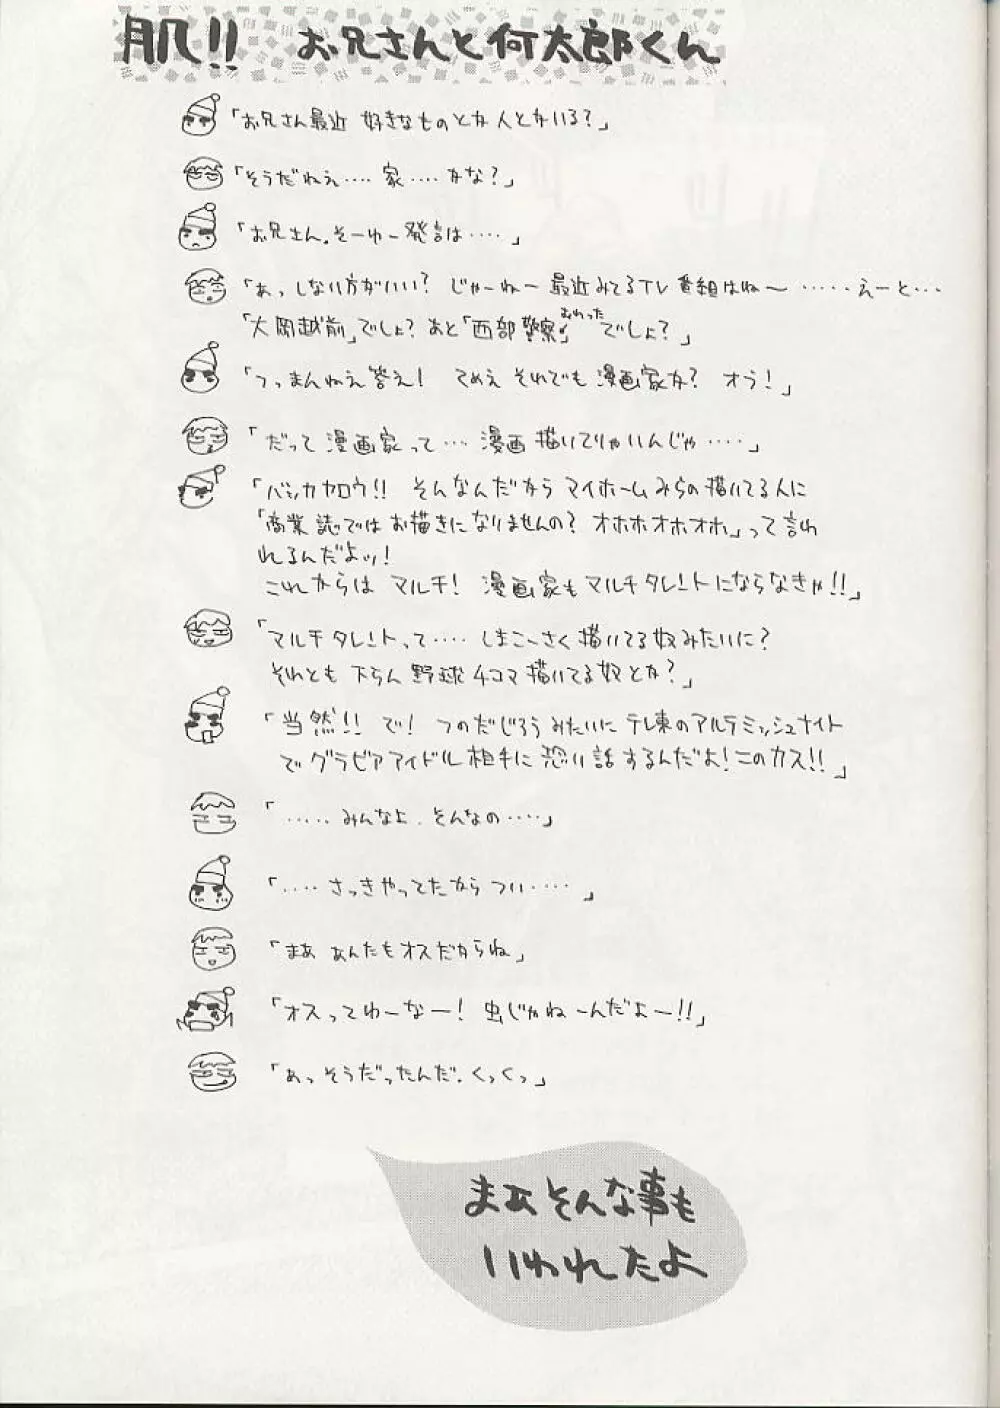 肌!! お兄さんと何太郎くん
「お兄さん最近 好きなものとか人とかいる?」
「そうだねぇ‥‥ 家‥‥かな?」
「お兄さん。そーゆー発言は‥‥」
「あっしない方がいい? じゃーねー最近みてるTV番組はね〜 ‥‥‥えーと‥‥
「大岡越前」でしょ? あと「西部警察」でしょ?」
おわった
「つっまんねえ答え! てめえ それでも 漫画家か? オラ!」
「だって漫画家って‥‥ 漫画描いてりゃいんじゃ‥‥‥」
「バッカヤロウ!! そんなんだから マイホームみらの描いてる人に
「商業誌ではお描きになりませんの? オホホオホオホ」って言わ
れるんだよッ!
これからは マルチ! 漫画家もマルチタレントにならなきゃ!!」
「マルチタレントって‥‥ しまこーさく描いてる奴みたいに?
それとも 下らん野球4コマ描いてる奴とか?」
「当然!! で! つのだじろうみたいに テレ東のアルテミッシュナイト
でグラビアアイドル相手に恐い話するんだよ!このカス!!」
「‥‥‥みんなよ.そんなの‥‥」
「‥‥さっきやってたから つい‥‥‥」
「まあ あんたもオスだからね」
「オスってゆーなー! 虫じゃねーんだよー!!」
「あっそうだったんだ.くっくっ」
まぁそんな事も
いわれたよ